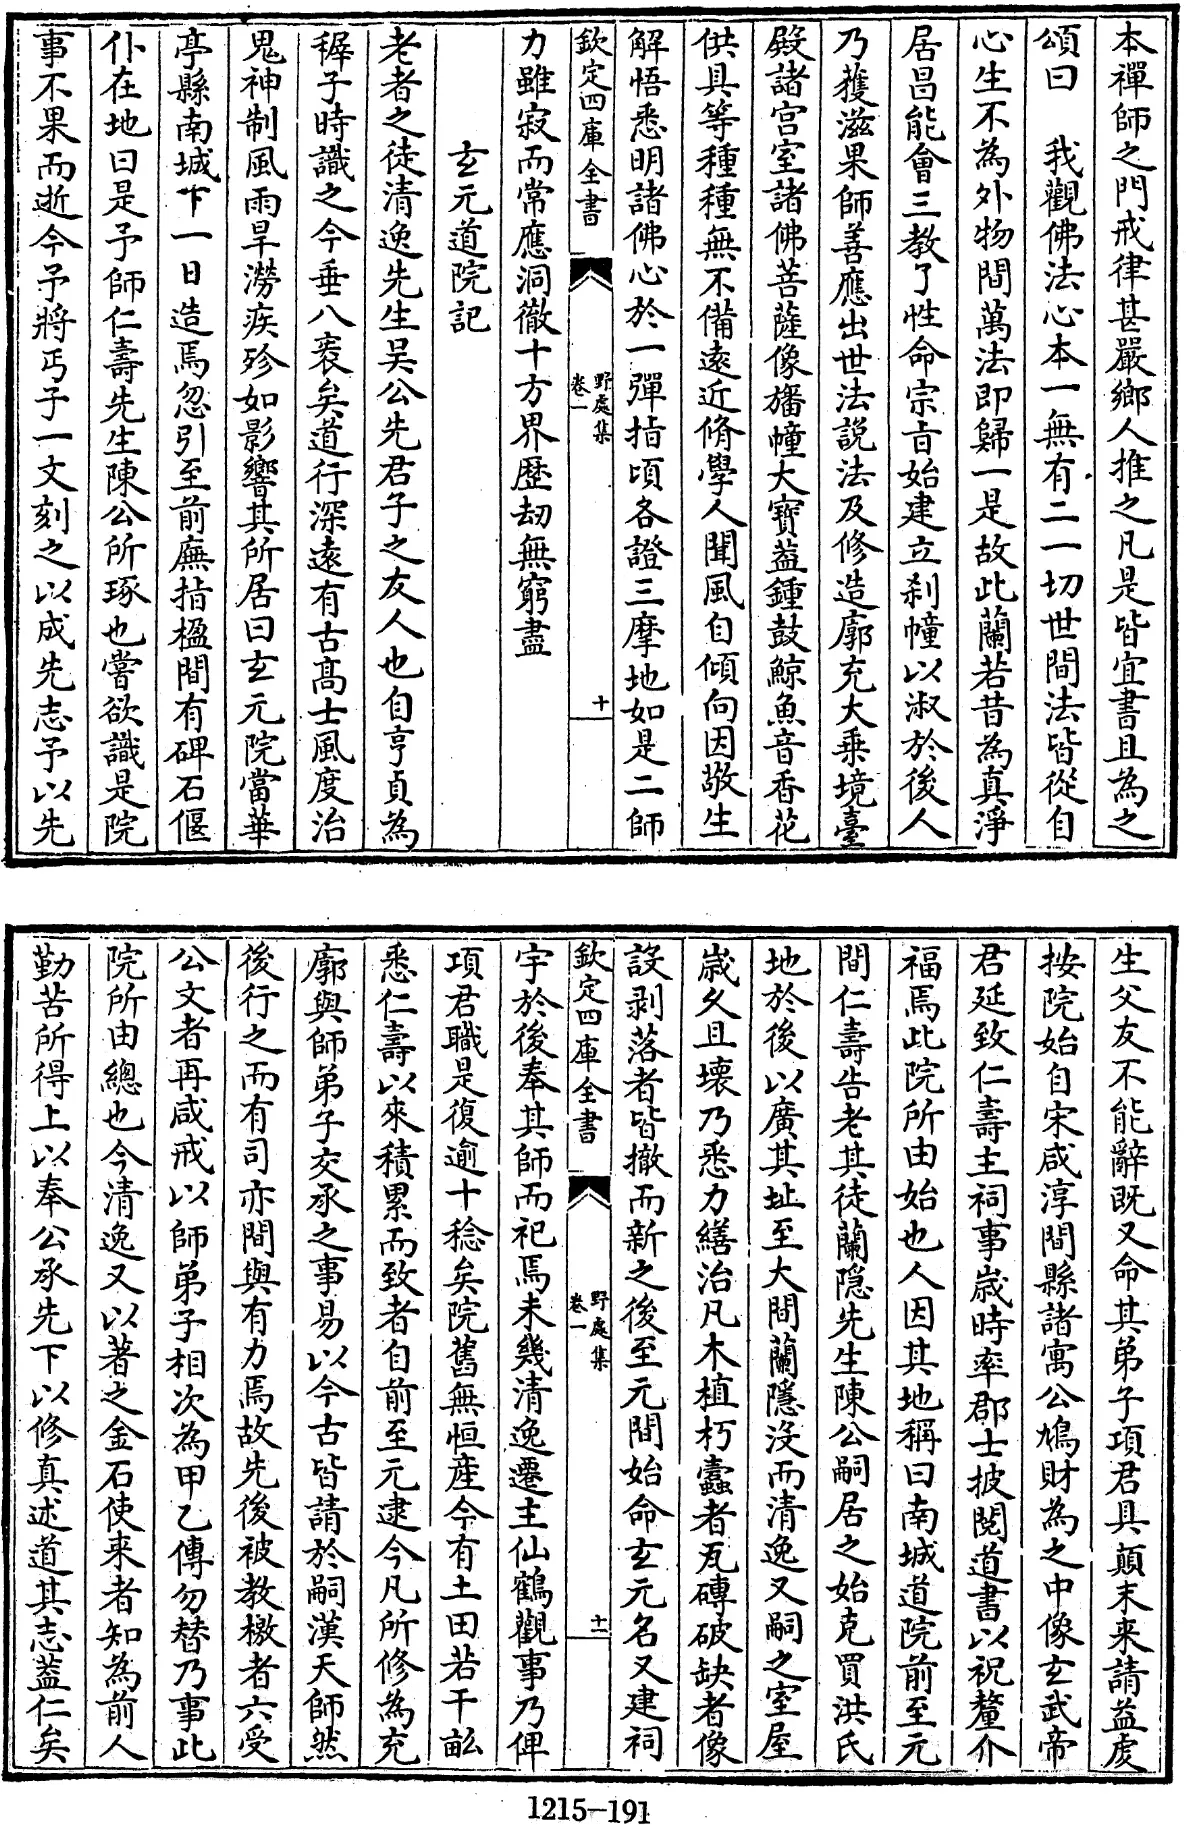 本禪師之門戒律甚嚴鄉人推之凡是皆宜書且為之
頌曰　我觀佛法心本一無有二一切世間法皆從自
心生不為外物間萬法即歸一是故此蘭若昔為真淨
居昌能會三教了性命宗㫖始建立刹幢以淑於後人
乃獲滋果師善應出世法説法及修造廓充大乗境臺
殿諸宫室諸佛菩薩像旛幢大寳葢鍾鼓鯨魚音香花
供具等種種無不備逺近脩學人聞風自傾向因敬生
解悟悉明諸佛心於一彈指頃各證三摩地如是二師
欽定四庫全書
野處集
卷一
十
力雖寂而常應洞徹十方界歴劫無窮盡
玄元道院記
老者之徒清逸先生吴公先君子之友人也自亨貞為
穉子時識之今垂八袠矣道行深逺有古髙士風度治
鬼神制風雨旱澇疾殄如影響其所居曰玄元院當華
亭縣南城下一日造焉忽引至前廡指楹間有碑石偃
仆在地曰是予師仁壽先生陳公所琢也嘗欲識是院
事不果而逝今予將丐子一文刻之以成先志予以先
生父友不能辭既又命其弟子項君具顛末来請益䖍
按院始自宋咸淳間縣諸寓公鳩財為之中像玄武帝
君延致仁壽主祠事嵗時率郡士披閲道書以祝釐介
福焉此院所由始也人因其地稱曰南城道院前至元
間仁壽告老其徒蘭隠先生陳公嗣居之始克買洪氏
地於後以廣其址至大間蘭隱沒而清逸又嗣之室屋
嵗久且壊乃悉力繕治凡木植朽蠧者瓦磚破缺者像
設剥落者皆撤而新之後至元間始命玄元名又建祠
欽定四庫全書
野處集
卷一
十一
宇於後奉其師而祀焉未幾清逸遷主仙鶴觀事乃俾
項君職是復逾十稔矣院舊無恒産今有土田若干畝
悉仁壽以來積累而致者自前至元逮今凡所修為充
廓與師弟子交承之事易以今古皆請於嗣漢天師然
後行之而有司亦間與有力焉故先後被教檄者六受
公文者再咸戒以師弟子相次為甲乙傳勿替乃事此
院所由總也今清逸又以著之金石使来者知為前人
勤苦所得上以奉公承先下以修真述道其志葢仁矣
1215-191